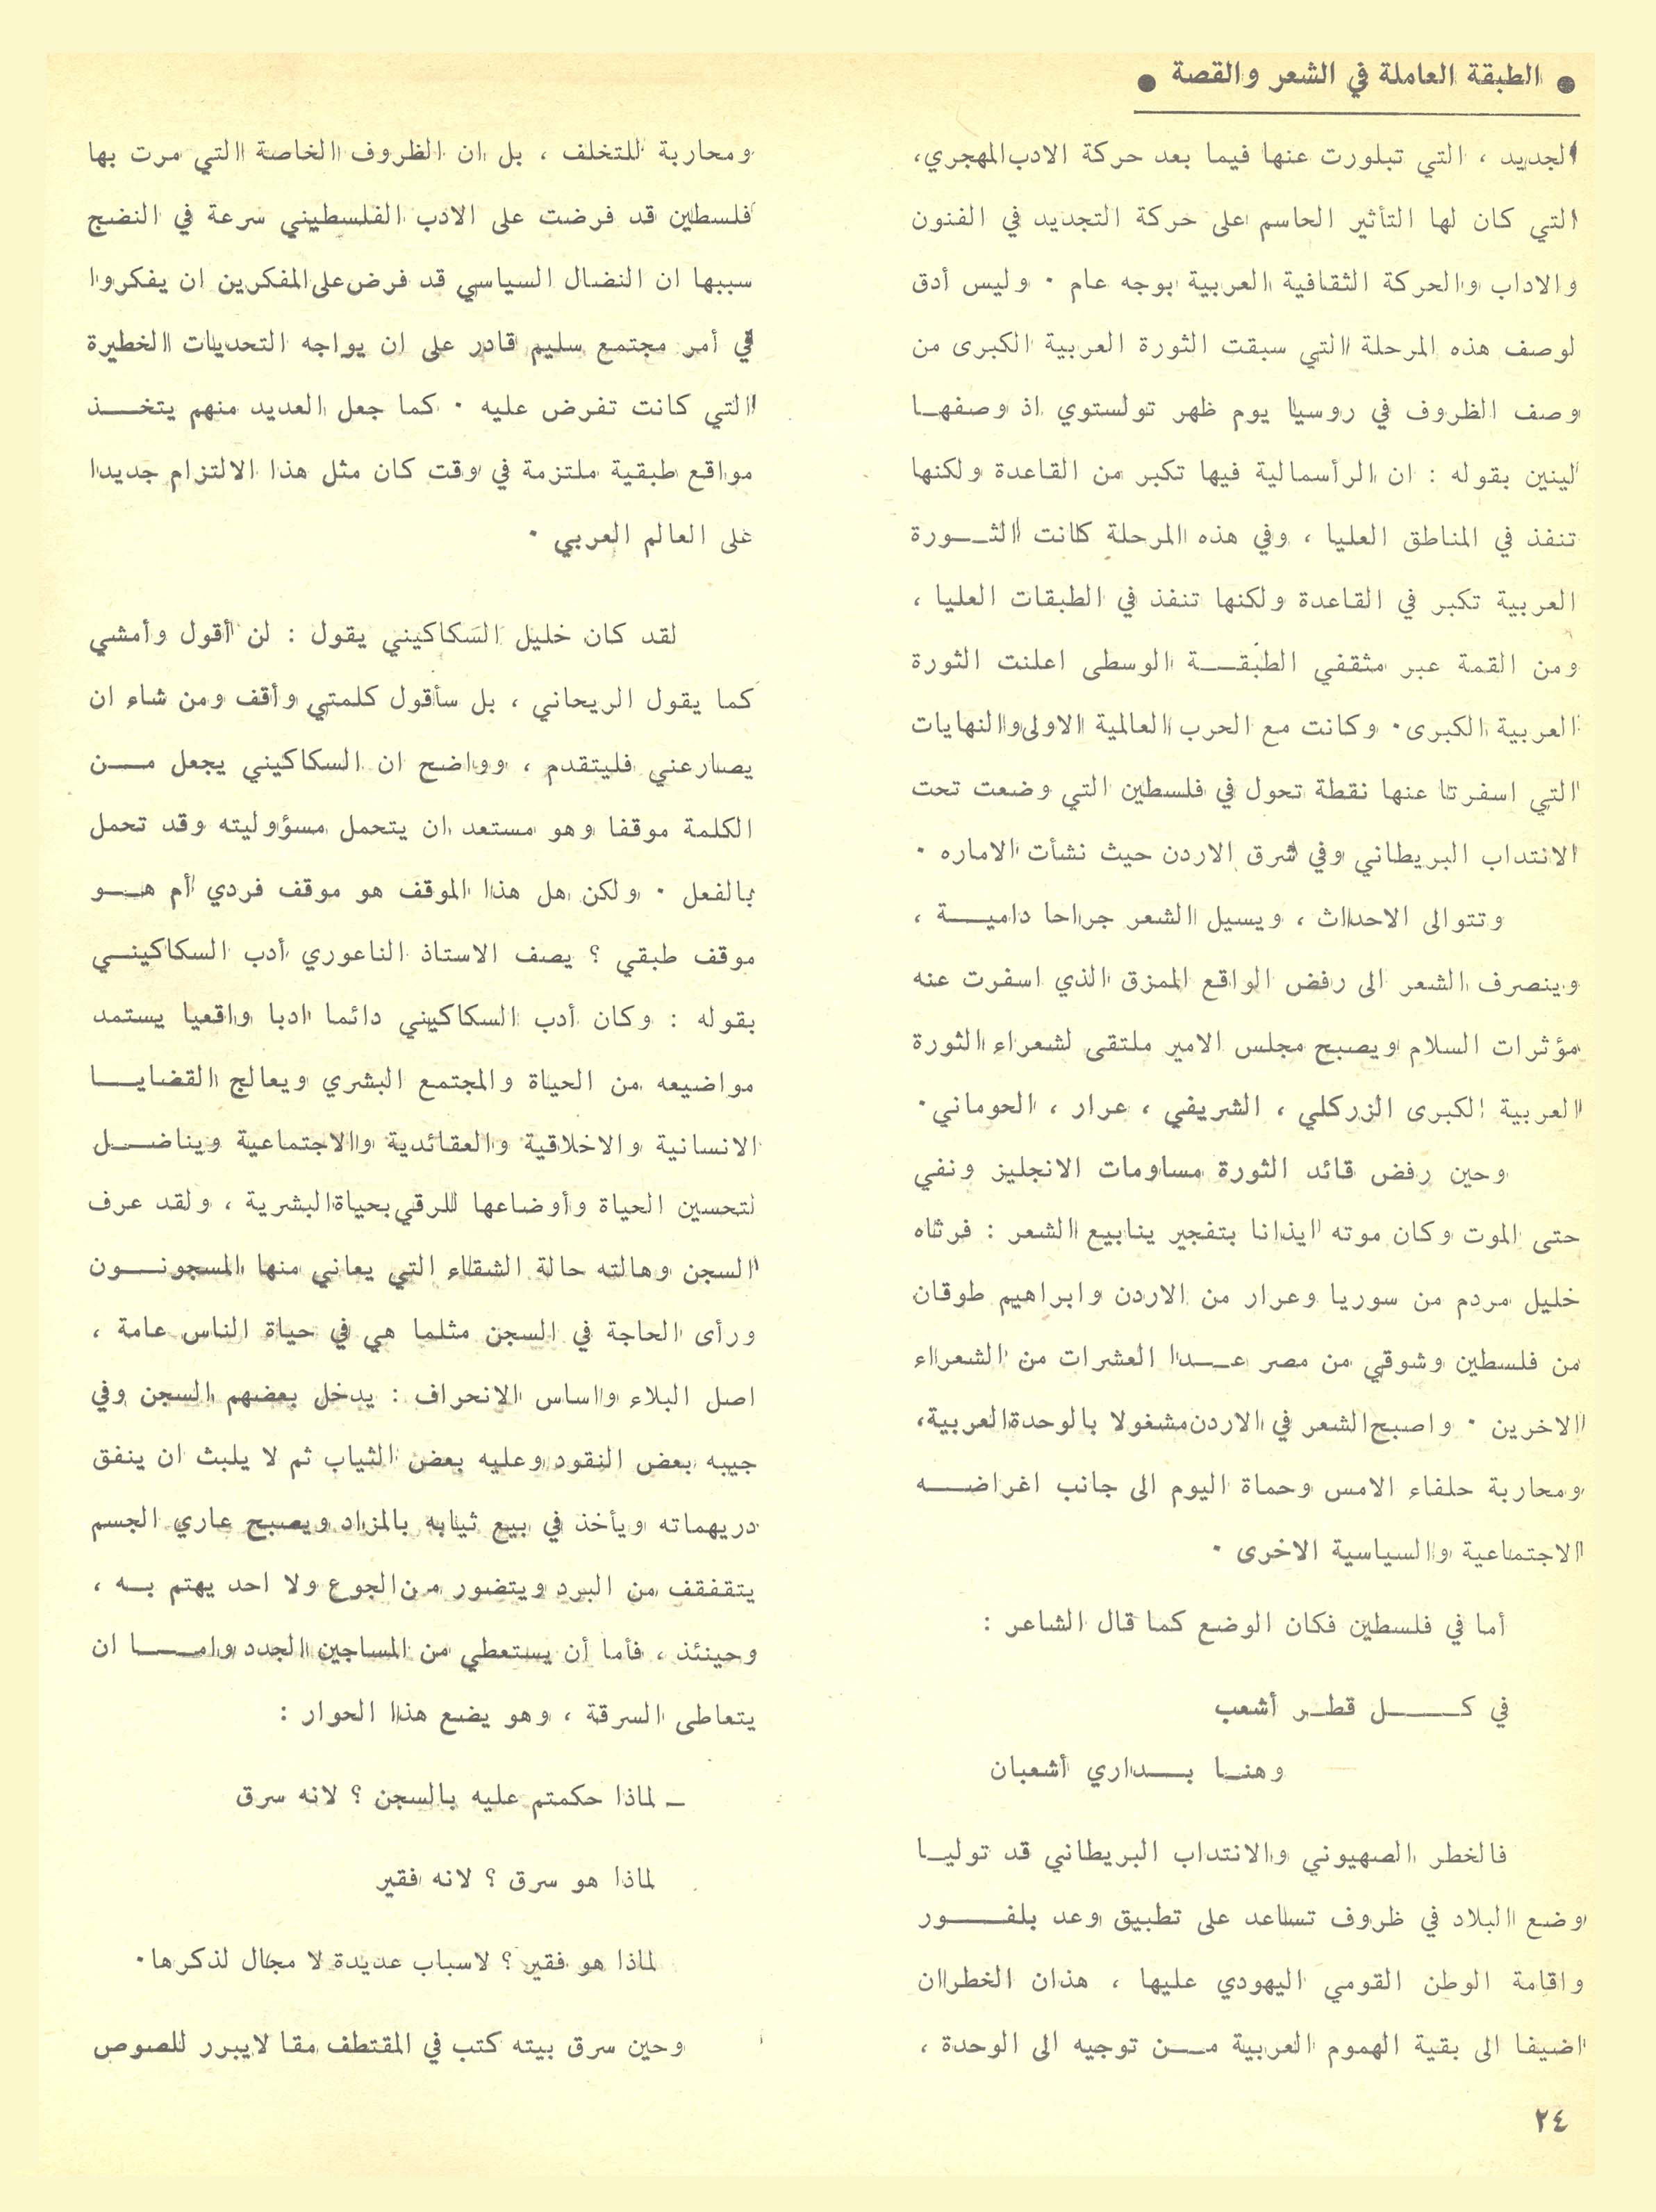 ● الطبقة العاملة في الشعر والقصة ●
الجديد ، التي تبلورت عنها فيما بعد حركة الادب المهجري،
التي كان لها التأثير الحاسم على حركة التجديد في الفنون
والاداب والحركة الثقافية العربية بوجه عام ٠ وليس أدق
لوصف هذه المرحلة التي سبقت الثورة العربية الكبرى من
وصف الظروف في روسيا يوم ظهر تولستوي اذ وصفهــا
لينين بقوله : ان الرأسمالية فيها تكبر من القاعدة ولكنها
تنفذ في المناطق العليا ، وفي هذه المرحلة كانت الثــورة
العربية تكبر في القاعدة ولكنها تنفذ في الطبقات العليا ،
ومن القمة عبر مثقفي الطبقــة الوسطى اعلنت الثورة
العربية الكبرى٠ وكانت مع الحرب العالمية الاولى والنهايات
التي اسفرتا عنها نقطة تحول في فلسطين التي وضعت تحت
الانتداب البريطاني وفي شرق الاردن حيث نشأت الاماره ٠
وتتوالى الاحداث ، ويسيل الشعر جراحا داميــة ،
وينصرف الشعر الى رفض الواقع الممزق الذي اسفرت عنه
مؤثرات السلام ويصبح مجلس الامير ملتقى لشعراء الثورة
العربية الكبرى الزركلي ، الشريفي ، عرار ، الحوماني٠
وحين رفض قائد الثورة مساومات الانجليز ونفي
حتى الموت وكان موته ايذانا بتفجير ينابيع الشعر : فرثاه
خليل مردم من سوريا وعرار من الاردن وابراهيم طوقان
من فلسطين وشوقي من مصر عــدا العشرات من الشعراء
الاخرين ٠ واصبح الشعر في الاردن مشغولا بالوحدة العربية،
ومحاربة حلفاء الامس وحماة اليوم الى جانب اغراضــه
الاجتماعية والسياسية الاخرى ٠
أما في فلسطين فكان الوضع كما قال الشاعر :
في كــــل قطــر أشعب
وهنــا بــداري أشعبان
فالخطر الصهيوني والانتداب البريطاني قد توليــا
وضع البلاد في ظروف تساعد على تطبيق وعد بلفــــور
واقامة الوطن القومي اليهودي عليها ، هذان الخطران
اضيفا الى بقية الهموم العربية مــن توجيه الى الوحدة ،
ومحاربة للتخلف ، بل ان الظروف الخاصة التي مرت بها
فلسطين قد فرضت على الادب الفلسطيني سرعة في النضج
سببها ان النضال السياسي قد فرض على المفكرين ان يفكروا
في أمر مجتمع سليم قادر على ان يواجه التحديات الخطيرة
التي كانت تفرض عليه ٠ كما جعل العديد منهم يتخــذ
مواقع طبقية ملتزمة في وقت كان مثل هذا الالتزام جديدا
على العالم العربي ٠
لقد كان خليل السكاكيني يقول : لن أقول وأمشي
كما يقول الريحاني ، بل سأقول كلمتي وأقف ومن شاء ان
يصارعني فليتقدم ، وواضح ان السكاكيني يجعل مــن
الكلمة موقفا وهو مستعد ان يتحمل مسؤوليته وقد تحمل
بالفعل ٠ ولكن هل هذا الموقف هو موقف فردي أم هــو
موقف طبقي ؟ يصف الاستاذ الناعوري أدب السكاكينــي
بقوله : وكان أدب السكاكيني دائما ادبا واقعيا يستمد
مواضيعه من الحياة والمجتمع البشري ويعالج القضايــا
الانسانية والاخلاقية والعقائدية والاجتماعية ويناضــل
لتحسين الحياة وأوضاعها للرقي بحياة البشرية ، ولقد عرف
السجن وهالته حالة الشقاء التي يعاني منها المسجونــون
ورأى الحاجة في السجن مثلما هي في حياة الناس عامة ،
اصل البلاء واساس الانحراف : يدخل بعضهم السجن وفي
جيبه بعض النقود وعليه بعض الثياب ثم لا يلبث ان ينفق
دريهماته ويأخذ في بيع ثيابه بالمزاد ويصبح عاري الجسم
يتقفقف من البرد ويتضور من الجوع ولا احد يهتم بــه ،
وحينئذ ، فأما أن يستعطي من المساجين الجدد وامــا ان
يتعاطى السرقة ، وهو يضع هذا الحوار :
ــ لماذا حكمتم عليه بالسجن ؟ لانه سرق
لماذا هو سرق ؟ لانه فقير
لماذا هو فقير ؟ لاسباب عديدة لا مجال لذكرها٠
وحين سرق بيته كتب في المقتطف مقا لايبرر للصوص
٢٤